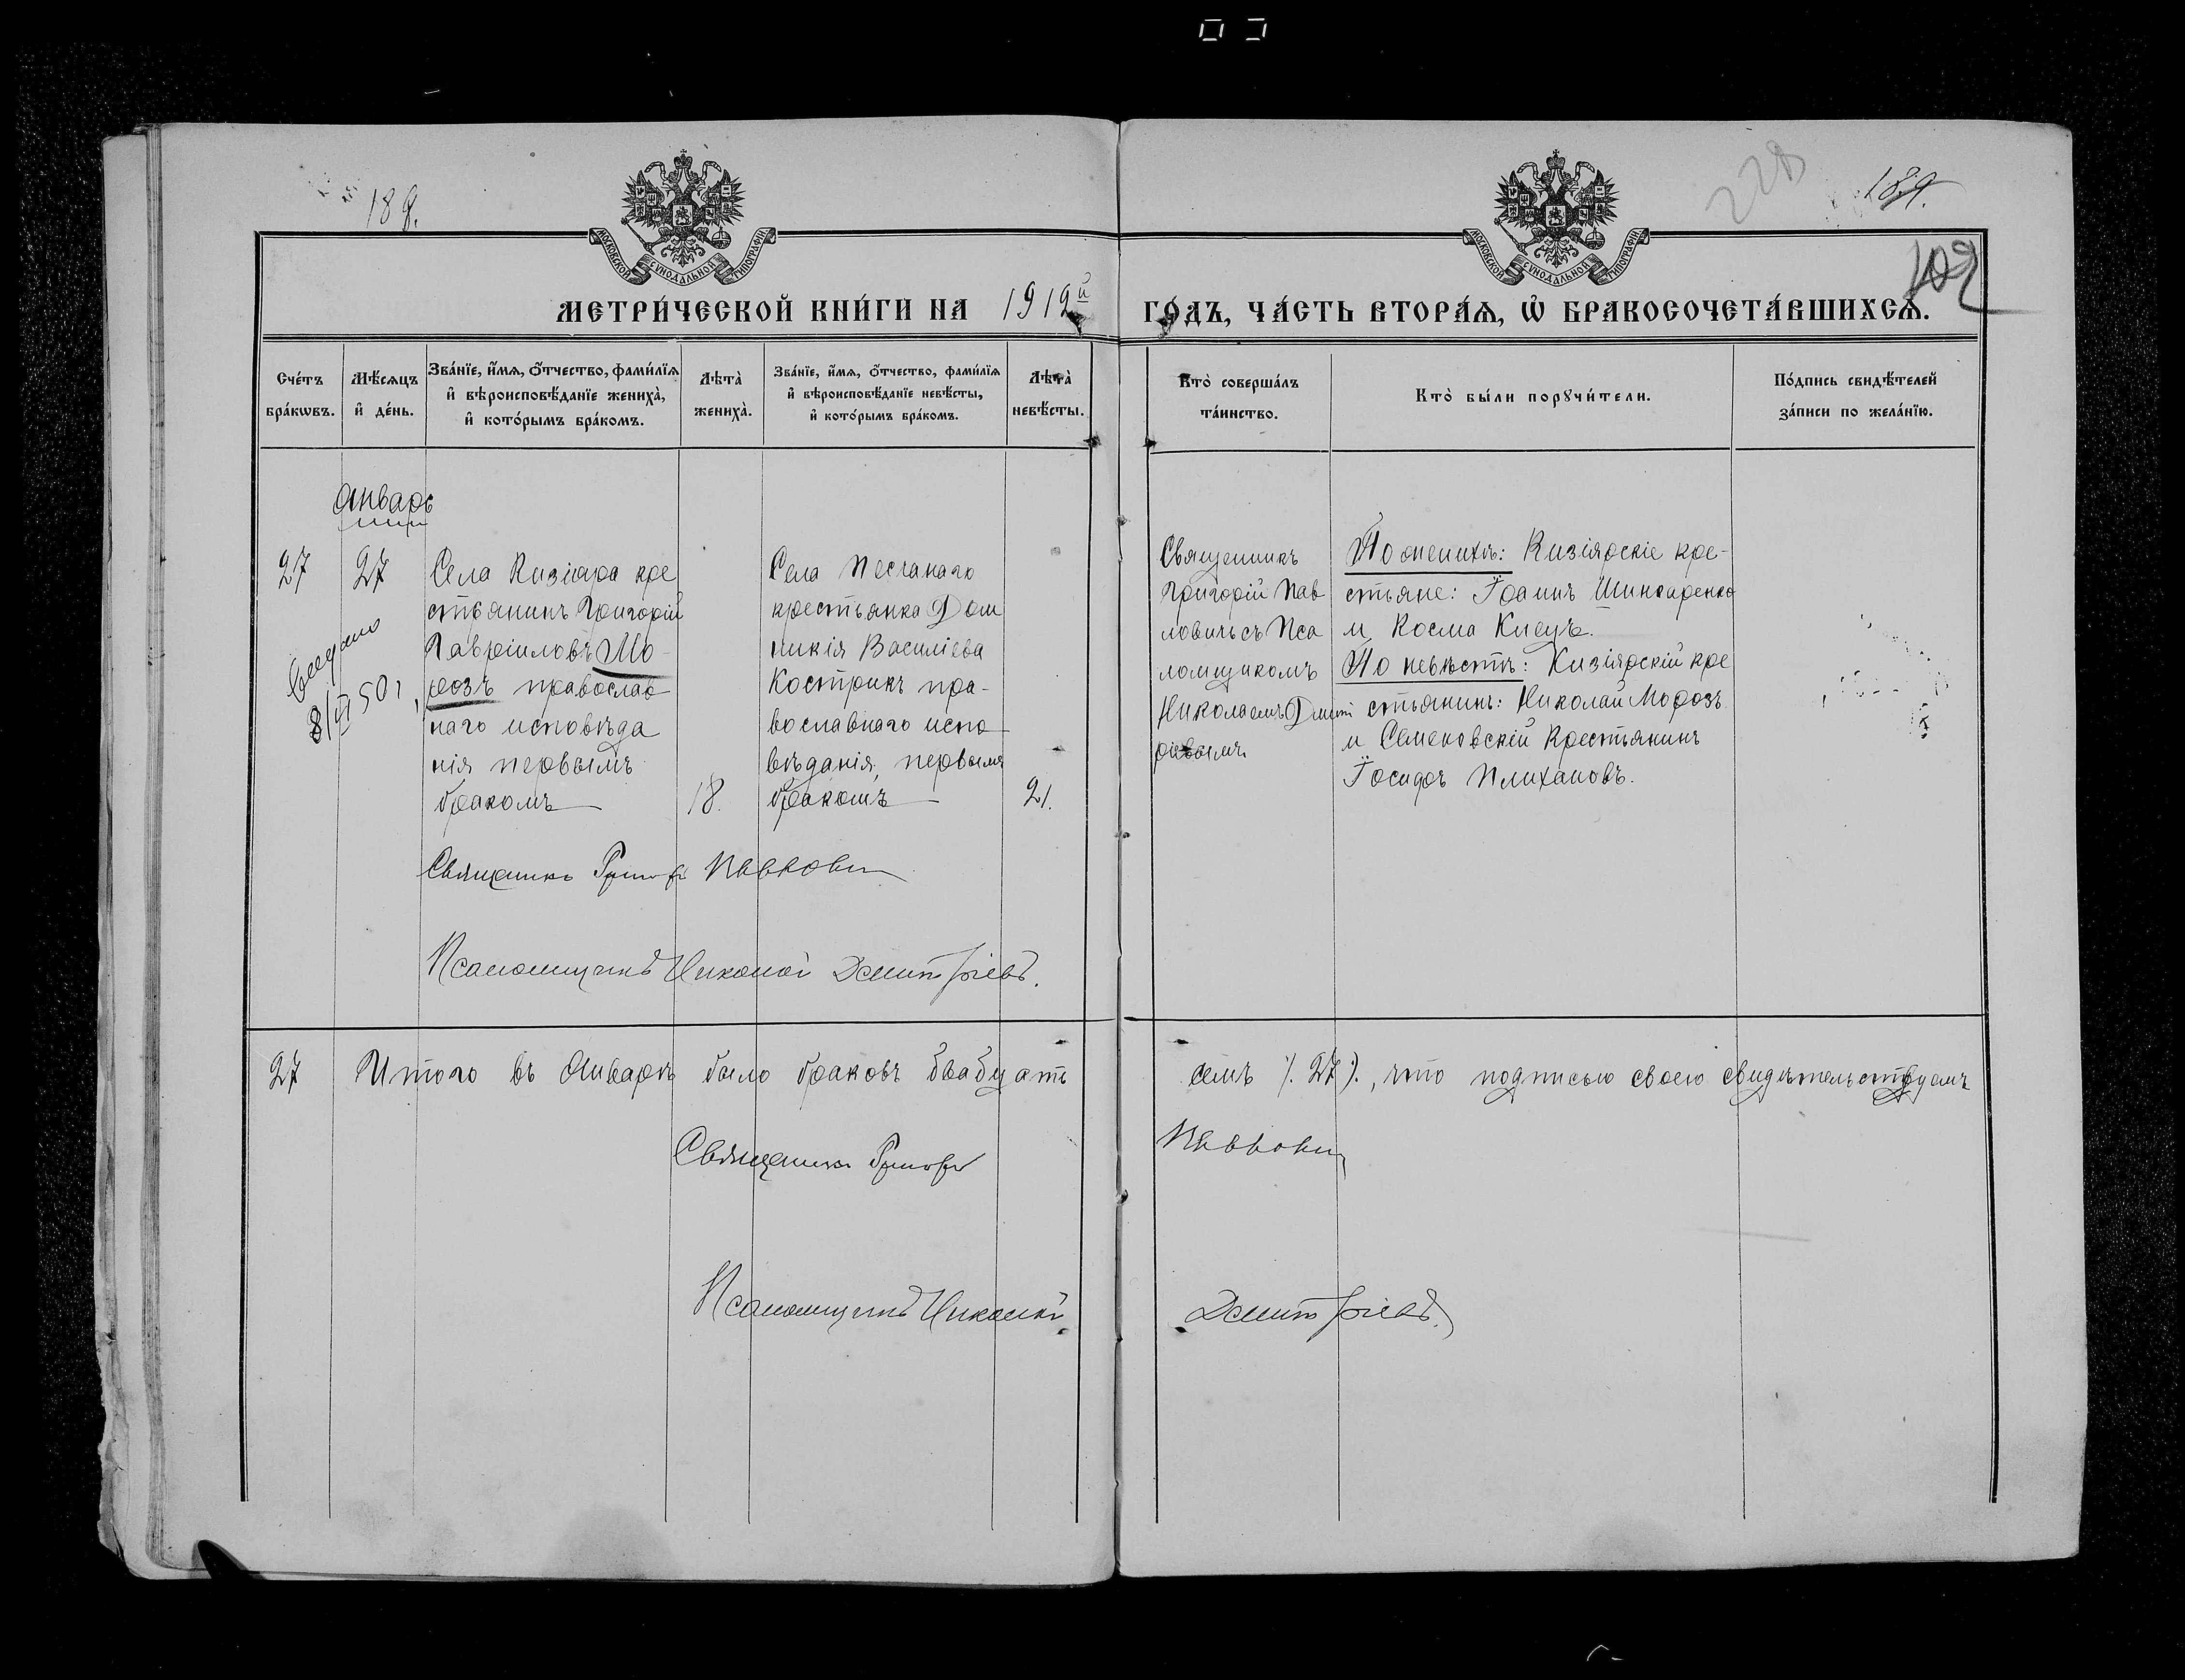 188.
228
189.
109
МОСКОВСКОЙ СУНОДАЛЬНОЙ ТИПОГРАФІИ
МОСКОВСКОЙ СУНОДАЛЬНОЙ ТИПОГРАФІИ
МЕТРИ́ЧЕСКОЙ КНИ́ГИ НА 1919й ГО́ДЪ, ЧА́СТЬ ВТОРА́Ѧ, Ѽ БРАКОСОЧЕТА́ВШИХСѦ.
Счéтъ
брáкѡвъ.
Мѣ́сѧцъ
и҆ дéнь.
Звáнїе, и҆́мѧ, ѻ҆́тчество, фами́лїѧ
и҆ вѣроисповѣ́данїе женихà,
и҆ котóрымъ брáкомъ.
Лѣтà
женихà.
Звáнїе, и҆́мѧ, ѻ҆́тчество, фами́лїѧ
и҆ вѣроисповѣ́данїе невѣ́сты,
и҆ котóрымъ брáкомъ.
Лѣтà
невѣ́сты.
Ктò совершáлъ
тáинство.
Ктò бы́ли порꙋчи́тели.
Пóдпись свидѣ́телей
зáписи по желáнїю.
Январь
27
27
Села Кизіяра кре
стьянинъ Григорій
Гавріиловъ Мо-
розъ православ
наго исповѣда
нія первымъ
бракомъ
18.
Села Песчанаго
крестьянка Дом
никія Василіева
Кострикъ пра-
вославнаго испо
вѣданія, первымъ
бракомъ
21.
Священникъ
Григорій Пав
ловичъ съ Пса
ломщикомъ
Николаемъ Дмит
ріевымъ
По женихѣ: Кизіярскіе кре-
стьяне: Іоаннъ Шинкаренко
и Косма Киецъ.
По невѣстѣ: Кизіярскій кре
стьянинъ: Николай Морозъ
и Семеновскій Крестьянинъ
Іосифъ Плихановъ.
8/VI 50г
Священникъ Григорій Павловичъ
Псаломщикъ Николай Дмитріевъ.
27 Итого въ Январѣ было браковъ двадцать семь /. 27 /., что подписью своею свидѣтельствуемъ
Священникъ Григорій Павловичъ
Псаломщикъ Николай Дмитріевъ.